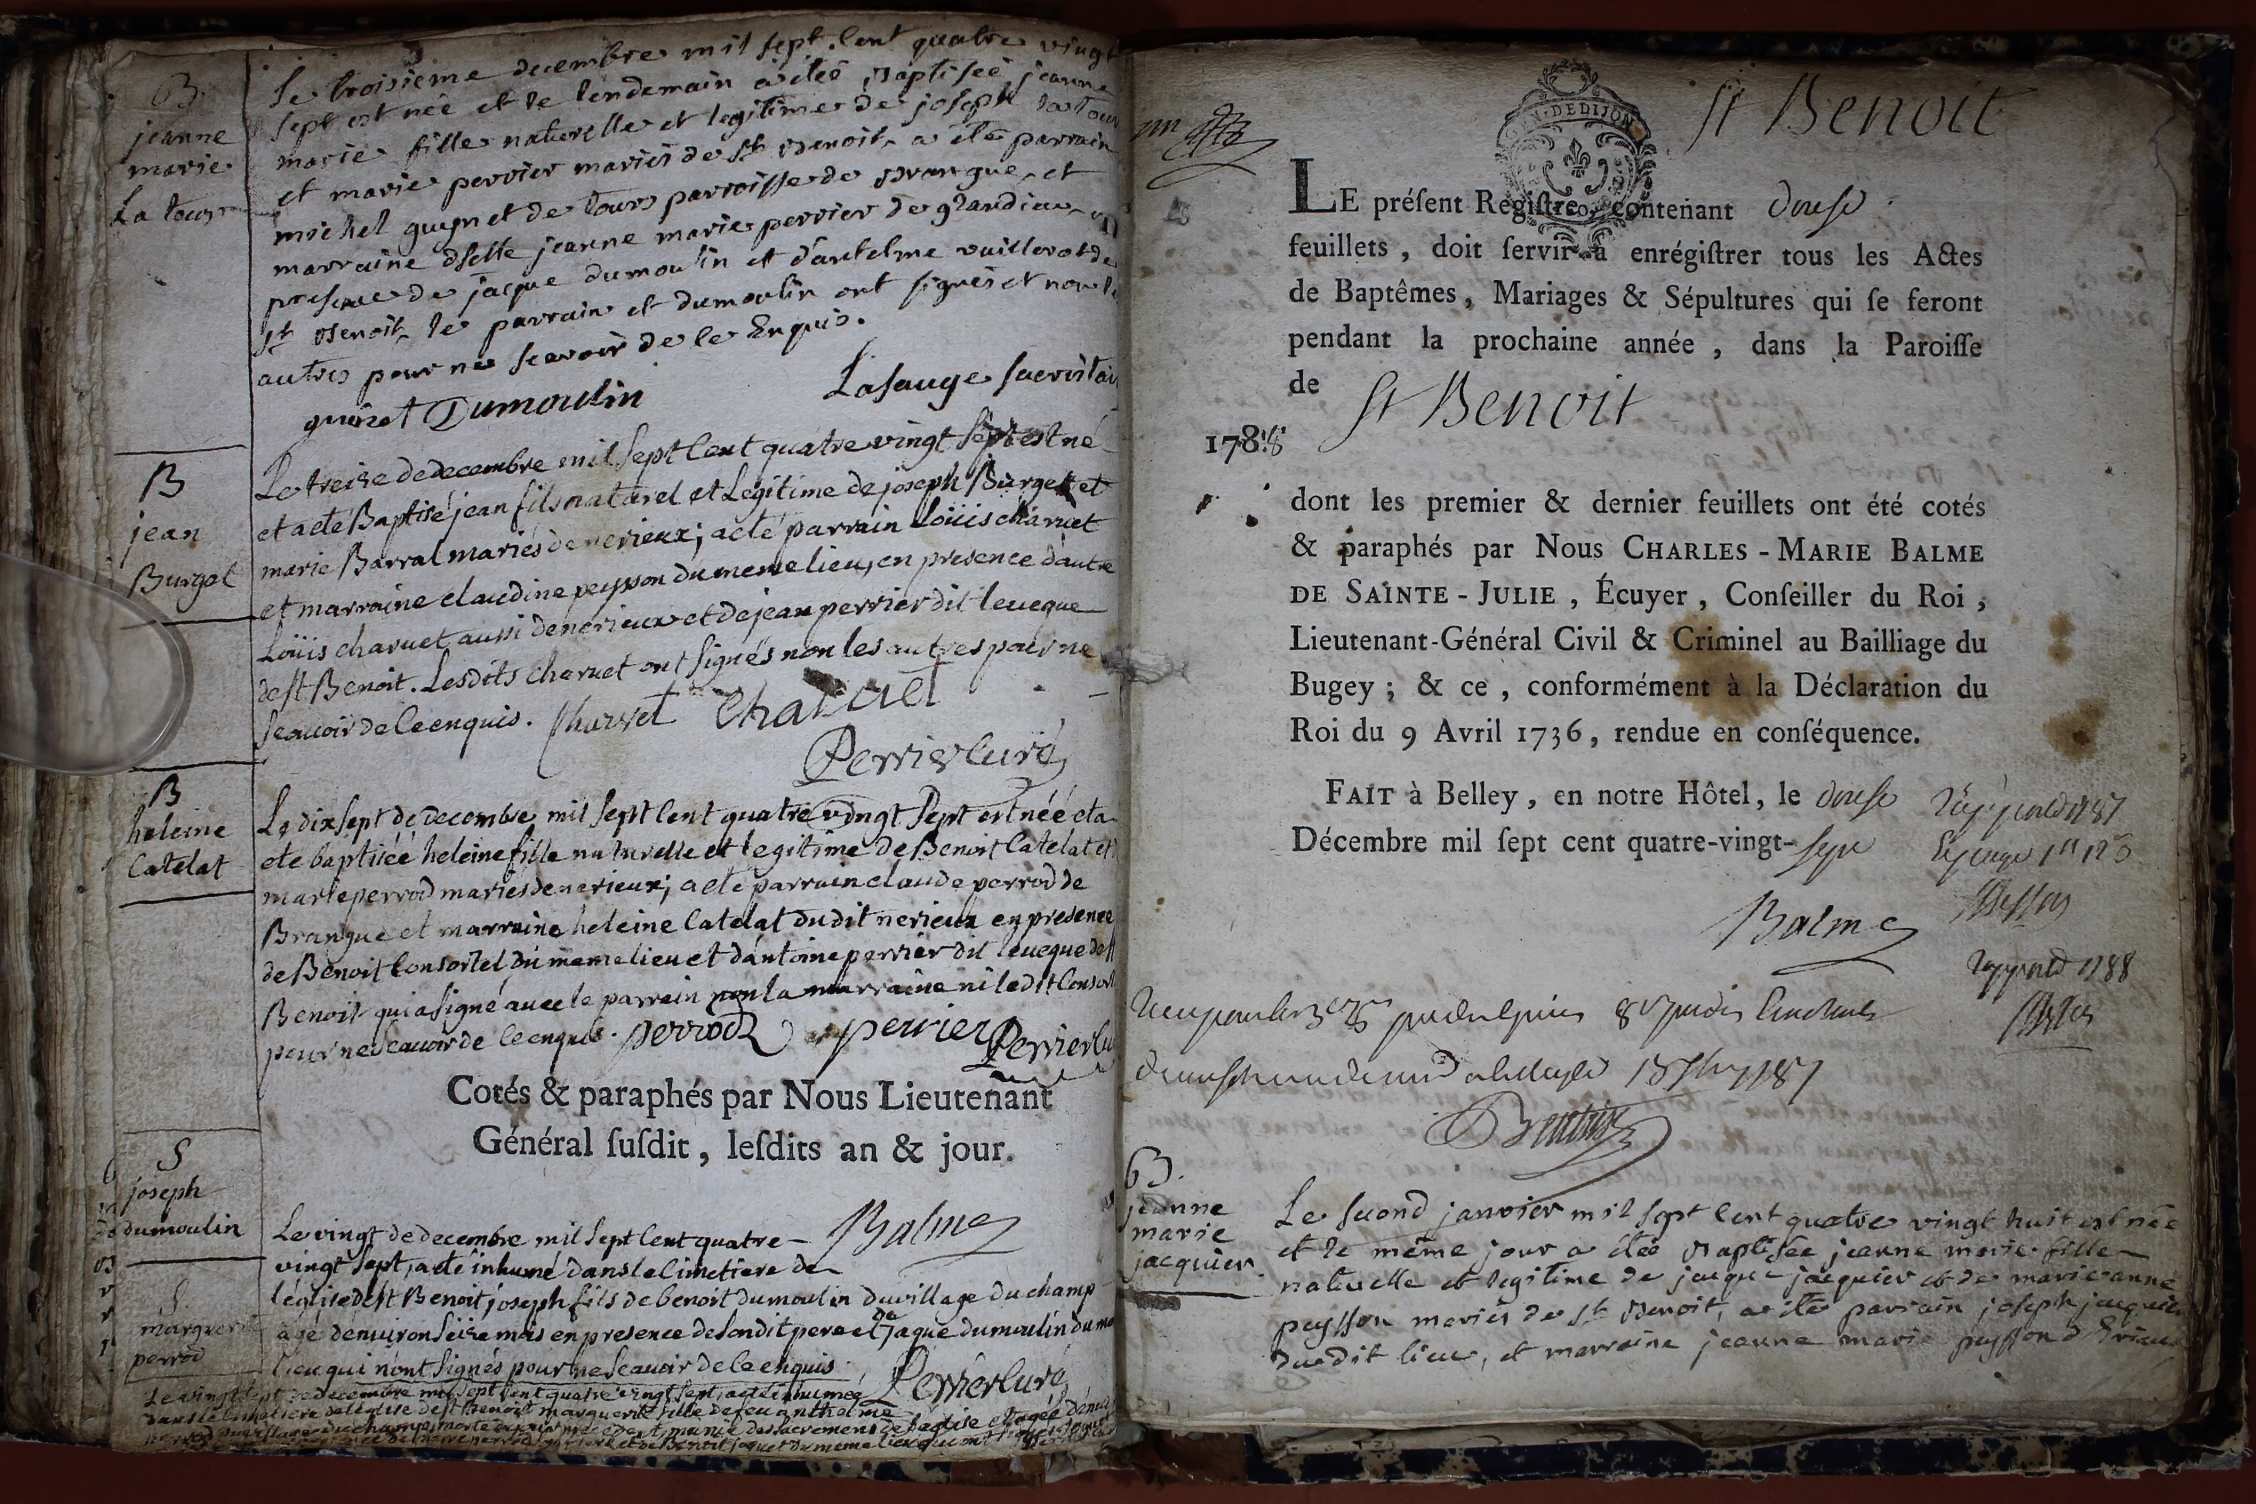 B
jeanne
marie
La tour
Le troisieme decembre mil sept. Cent quatre vingt
sept est née et le lendemain a éteé Baptiseé jeanne
marie fille naturelle et legitime de joseph la tour
et marie perrier mariés de St Benoit a été parrain
michel guynet de tours parroisse de Brangue, et
marraine dselle jeanne marie perrier de glandieu, en
presence de jacque dumoulin et d'antelme vuillerot de
St Benoit, le parrain et dumoulin ont signés et non les
autres pour ne scavoir de ce Enquis.
guinet Dumoulin Lasauge sacristain
B
jean
Burget
Le treize de decembre mil sept Cent quatre vingt sept est né
et a eté Baptisé jean fils naturel et Legitime de joseph Burget et
marie Barral mariés de nerieux; a eté parrain Loüis charvet
et marraine claudine peysson du meme lieu, en presence d'autre
Loüis charvet aussi de nerieux et de jean perrier dit leveque
de st Benoit. Lesdits charvet ont signés non les autres pour ne
scavoir de ce enquis. Charvet Charvet
Perrier Curé
B
heleine
Catelat
Le dix sept de decembre mil sept Cent quatre vingt sept est née et a
eté baptisée heleine fille naturelle et legitime de Benoit Catelat et
marie perrod mariés de nerieux; a eté parrain claude perrod de
Brangue et marraine heleine Catelat dudit nerieux en presence
de Benoit Consortel du meme lieu et d'antoine perrier dit leveque de st
Benoit qui a signé avec le parrain non la marraine ni ledit Consort
pour ne scavoir de ce enquis. perrod perrier Perrier Cu
Cotés & paraphés par Nous Lieutenant
Général ſuſdit, leſdits an & jour.
Balme
S
joseph
dumoulin
Le vingt de decembre mil sept Cent quatre
vingt sept, a eté inhumé dans le Cimetiere de
l'église de st Benoit joseph fils de benoit dumoulin du village du champ
agé d'environ seize mois en presence de son dit pere et de Jaque dumoulin du me
lieu qui n'ont signés pour ne scavoir de ce enquis.
Perrier Curé
S.
marguerite
perrod
Le vingt sept de decembre mil sept cent quatre vingt sept, a eté inhumée
dans le Cimetiere de l'église de st Benoit marguerite fille de feu anthelme
St Benoit
GEN. DE DIJON
LE préſent Regiſtre contenant douse
feuillets, doit ſervir à enrégiſtrer tous les Actes
de Baptêmes, Mariages & Sépultures qui ſe feront
pendant la prochaine année, dans la Paroiſſe
de St Benoit
1788
dont les premier & dernier feuillets ont été cotés
& paraphés par Nous CHARLES-MARIE BALME
DE SAINTE-JULIE, Écuyer, Conſeiller du Roi,
Lieutenant-Général Civil & Criminel au Bailliage du
Bugey; & ce, conformément à la Déclaration du
Roi du 9 Avril 1736, rendue en conſéquence.
FAIT à Belley, en notre Hôtel, le douse
Décembre mil ſept cent quatre-vingt-sept
Balme
1788
B.
jeanne
marie
jacquier
Le second janvier mil sept Cent quatre vingt huit est née
et le même jour a étée Baptisée jeanne marie fille
naturelle et legitime de jacque jacquier et de marie anne
peysson mariés de St Benoit, a été parrain joseph jacquier
du dit lieu, et marraine jeanne marie peysson